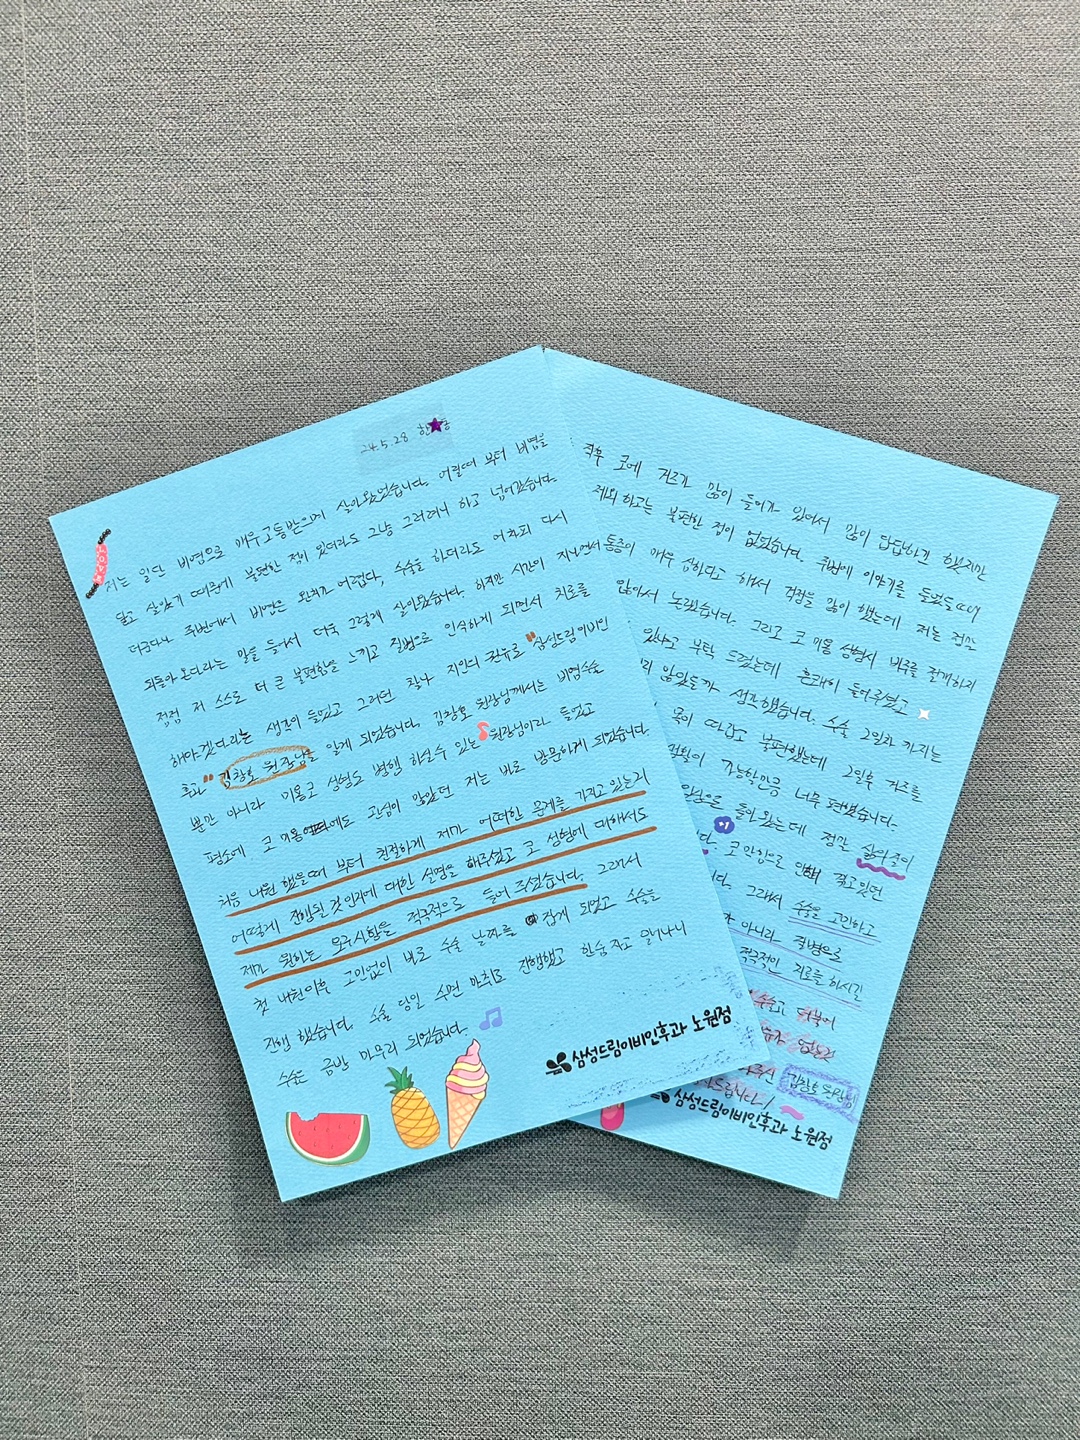 24.5.28 한★
저는 일단 비염으로 매우 고통받으며 살아왔었습니다. 어릴때 부터 비염을
달고 살았기 때문에 불편한 점이 있더라도 그냥 그러려니 하고 넘어갔습니다.
더군다나 주변에서 비염은 완치가 어렵다, 수술을 하더라도 어차피 다시
되돌아 온다라는 말을 들어서 더욱 그렇게 살아왔습니다. 하지만 시간이 지나면서
점점 저 스스로 더 큰 불편함을 느끼고 질병으로 인식하게 되면서 치료를
해야겠다라는 생각이 들었고 그러던 찰나 지인의 권유로 "삼성드림이비인
후과" 김창호 원장님을 알게 되었습니다. 김창호 원장님께서는 비염수술
뿐만 아니라 미용코 성형도 병행 하실수 있는 원장님이라 들었고
평소에 코 미용 에도 관심이 많았던 저는 바로 방문하게 되었습니다
처음 내원 했을때 부터 친절하게 제가 어떠한 문제를 가지고 있는지
어떻게 진행될 것인지에 대한 설명을 해주셨고 코 성형에 대해서도
제가 원하는 요구사항을 적극적으로 들어 주셨습니다. 그래서
첫 내원이후 고민없이 바로 수술 날짜를 잡게 되었고 수술을
진행 했습니다. 수술 당일 수면 마취로 진행했고 한숨 자고 일어나니
수술은 금방 마무리 되었습니다.
삼성드림이비인후과 노원점
직후 코에 거즈가 많이 들어가 있어서 많이 답답하긴 했지만
제외 하고는 불편한 점이 없었습니다. 주변에 이야기를 들었을때
통증이 매우 심하다고 해서 걱정을 많이 했는데 저는 전혀
않아서 놀랐습니다. 그리고 코 미용 성형시 비주를 절개하지
있냐고 부탁 드렸는데 흔쾌히 들어주셨고
않았을까 생각했습니다. 수술 2일차 까지는
몸이 따갑고 불편했는데 2일후 거즈를
가능할만큼 너무 편했습니다.
들어왔는데 정말 삶의 질이
다. 코 막힘으로 인해 겪고있던
다. 그래서 수술을 고민하고
아니라 질병으로
적극적인 치료를 하시길
수술과 더불어
김창호 원장님
드립니다!
삼성드림이비인후과 노원점